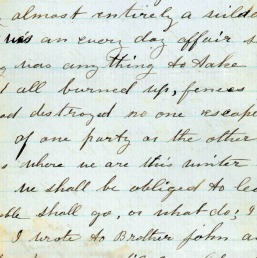 almost entirely a
was an every day affair
was anything to take
all burned up, fences
destroyed no one escape
of one party or the other
where we are this winter
we shall be obliged to
shall go, or what do; I
I wrote to Brother John